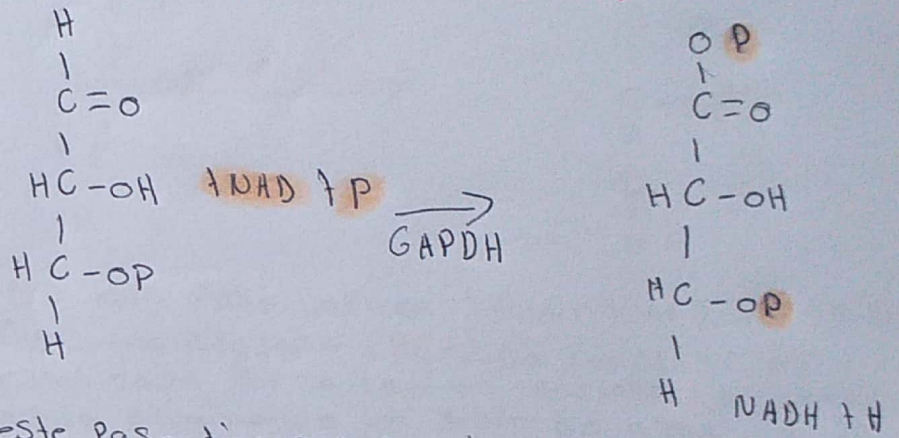 H
C=O
HC-OH +NAD +P
GAPDH
HC-OP
H
O P
C=O
HC-OH
HC-OP
H
NADH +H
este Pas